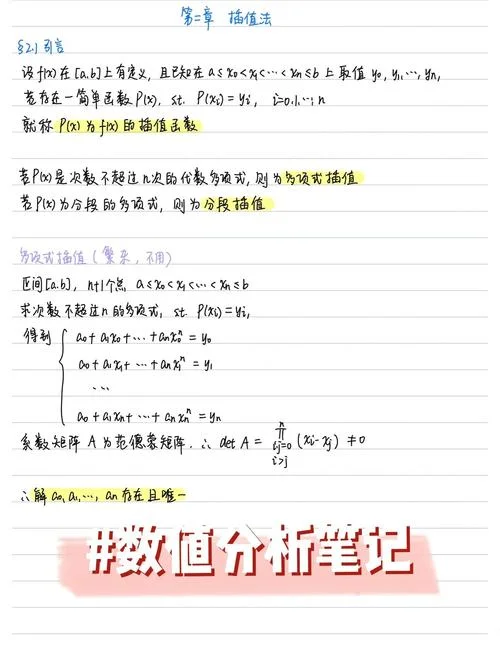 第二章 插值法
§2.1 引言
设f(x)在[a.b]上有定义，且已知在 a≤x₀<x₁<…<xₙ≤b 上取值 y₀, y₁, …, yₙ,
若存在一简单函数 P(x). st. P(xᵢ)=yᵢ, i=0.1.…; n
就称 P(x) 为 f(x) 的插值函数
若P(x)是次数不超过n次的代数多项式，则为多项式插值
若P(x)为分段的多项式，则为分段插值
多项式插值（繁杂，不用）
区间[a.b], n+1个点 a≤x₀<x₁<…<xₙ≤b
求次数不超过n的多项式, st. P(xᵢ)=yᵢ,
得到 { a₀+a₁x₀+…+aₙx₀ⁿ=y₀
a₀+a₁x₁+…+aₙx₁ⁿ=y₁
…
a₀+a₁xₙ+…+aₙxₙⁿ=yₙ
系数矩阵 A 为范德蒙矩阵. ∴ det A = ∏ⁿ_{i,j=0 i>j} (xᵢ-xⱼ) ≠0
∴解 a₀,a₁,…, aₙ 存在且唯一
#数值分析笔记